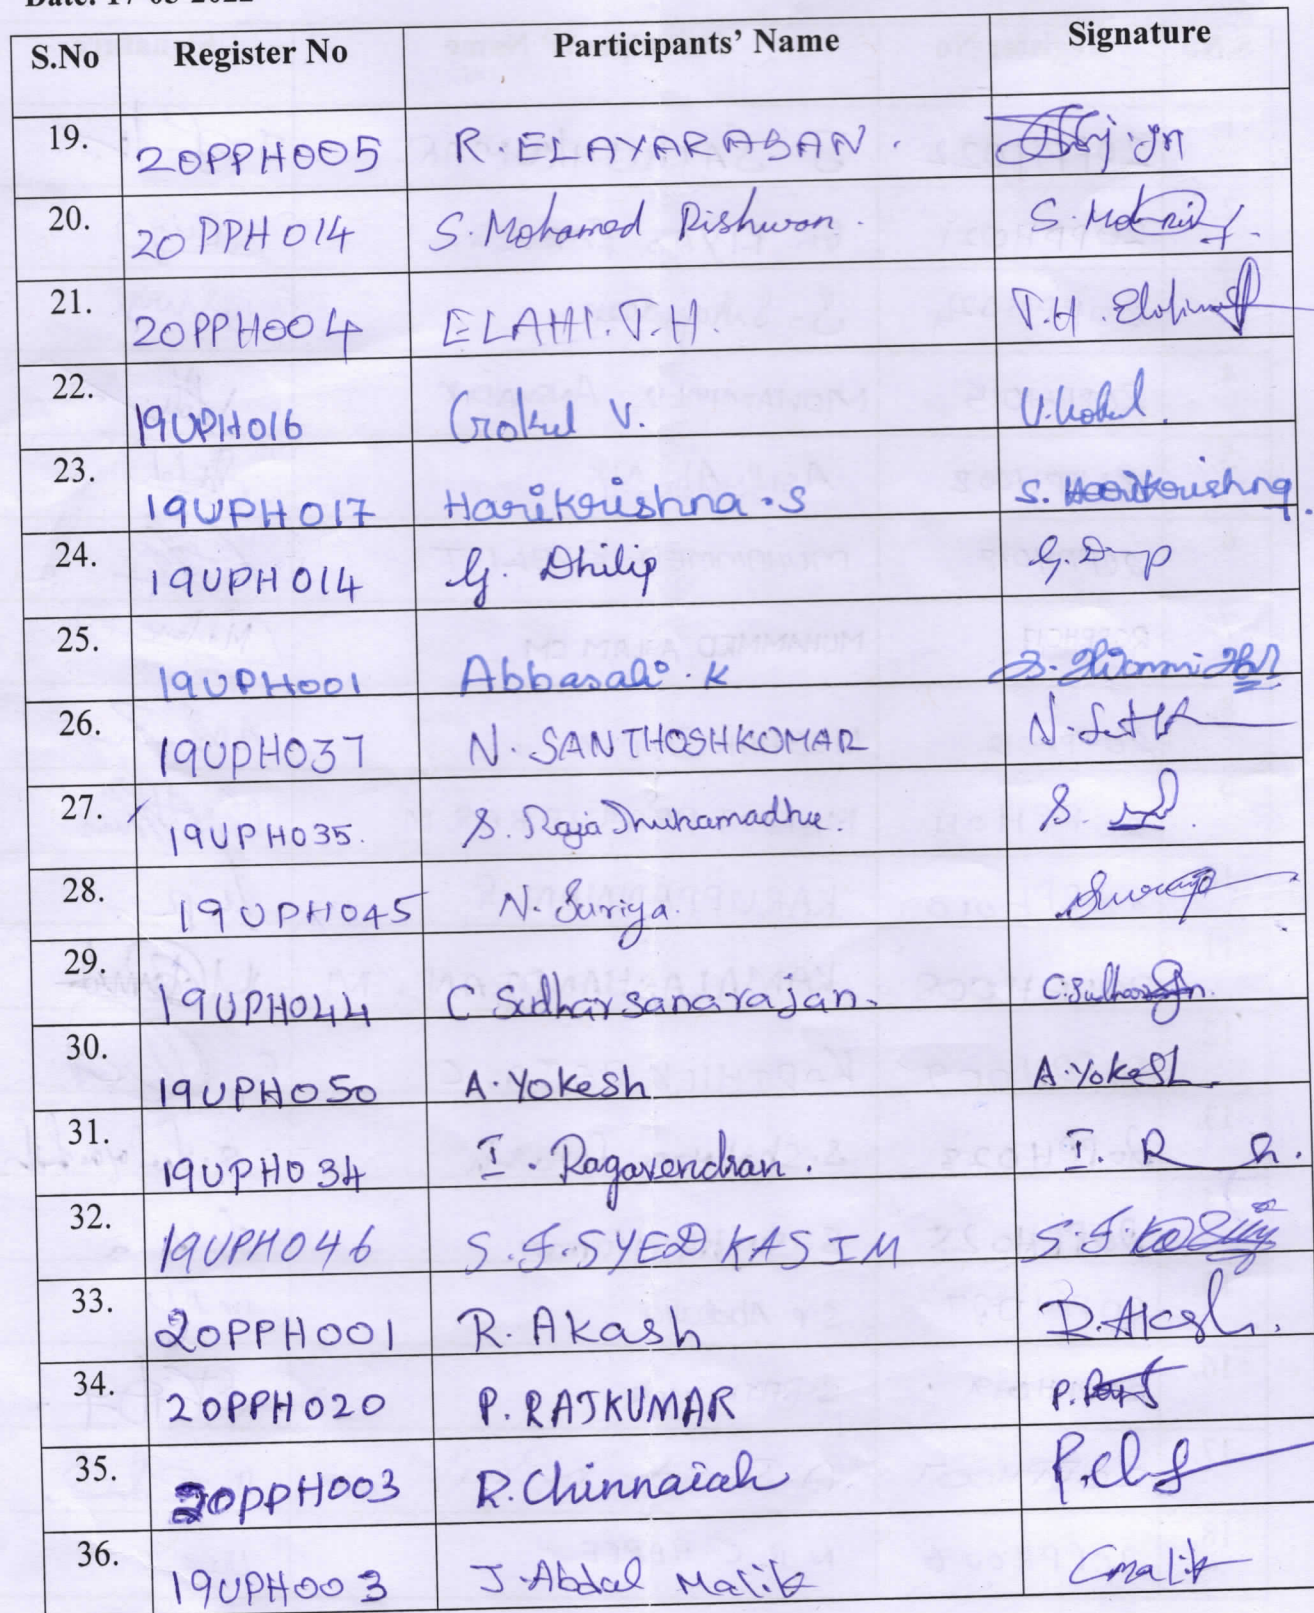 S.No Register No Participants' Name Signature
19. 20PPH005 R. ELAYARASAN.
20. 20PPH014 S. Mohamed Rishwan.
21. 20PPH004 ELAHI.T.H. T.H.
22. 19UPH016 Gokul V. V.Gokul
23. 19UPH017 Harikrishna.S S. Harikrishna.
24. 19UPH014 G. Dhilip
25. 19UPH001 Abbasali.K
26. 19UPH037 N. SANTHOSHKUMAR
27. 19UPH035. S. Raja
28. 19UPH045 N. Suriya. Suriya
29. 19UPH044 C Sudharsanarajan.
30. 19UPH050 A. Yokesh A.Yokesh.
31. 19UPH034 I. Ragavendran. I. R
32. 19UPH046 S.J.SYED KASIM S.J.
33. 20PPH001 R. Akash R.Akash.
34. 20PPH020 P. RAJKUMAR
35. 20PPH003 R. Chinnaiah
36. 19UPH003 J. Abdul Malik